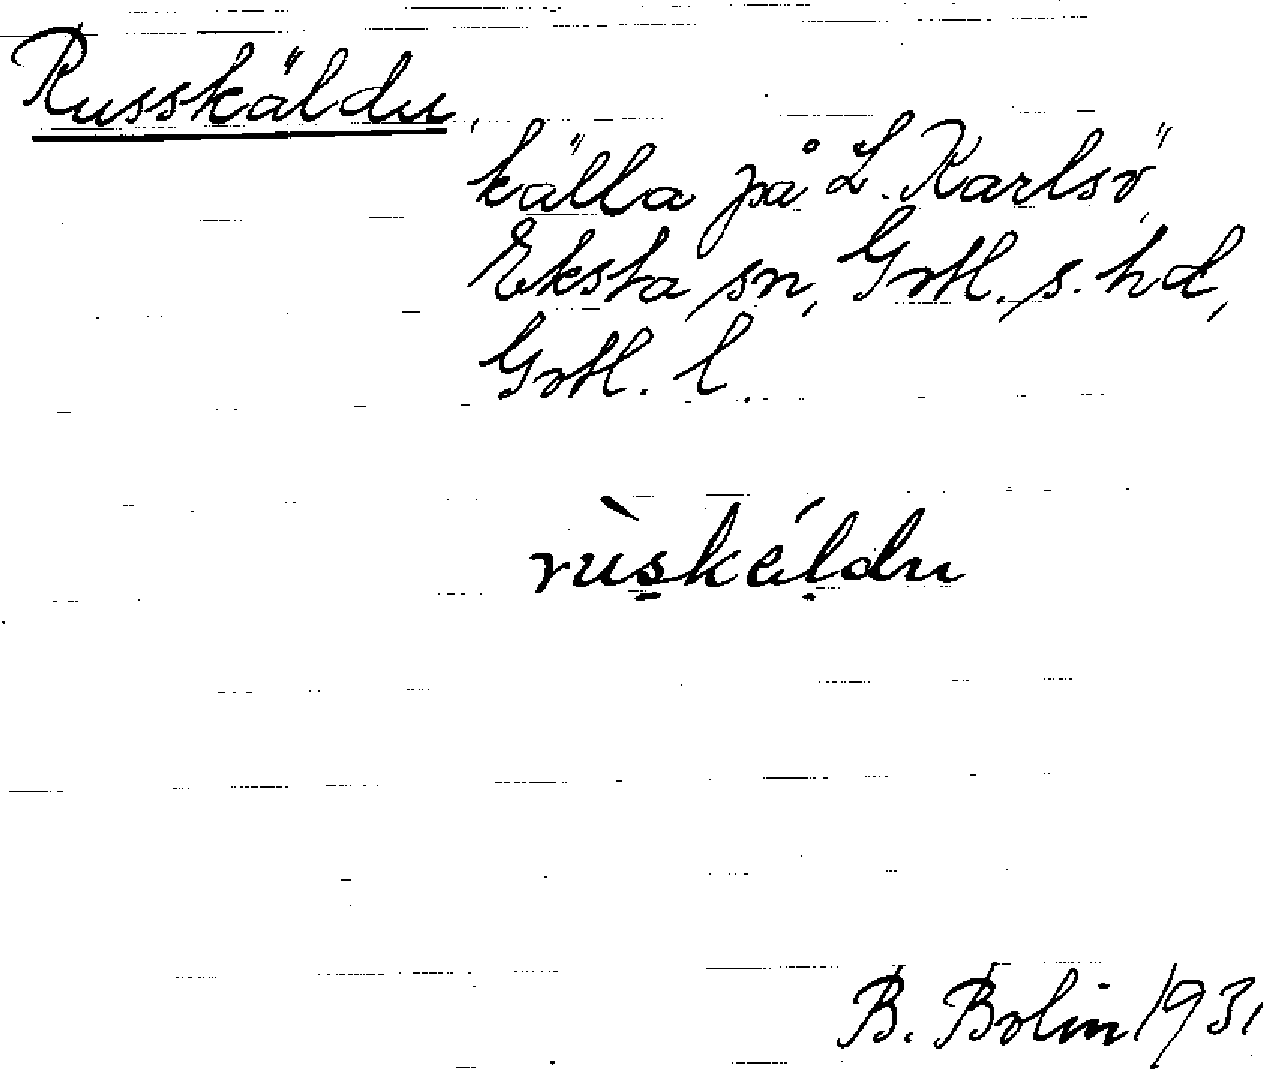 Russkäldu,
källa på L. Karlsö,
Eksta sn, Gotl. s. hd,
Gotl. l.
rùskéldu
B. Bolin 1931